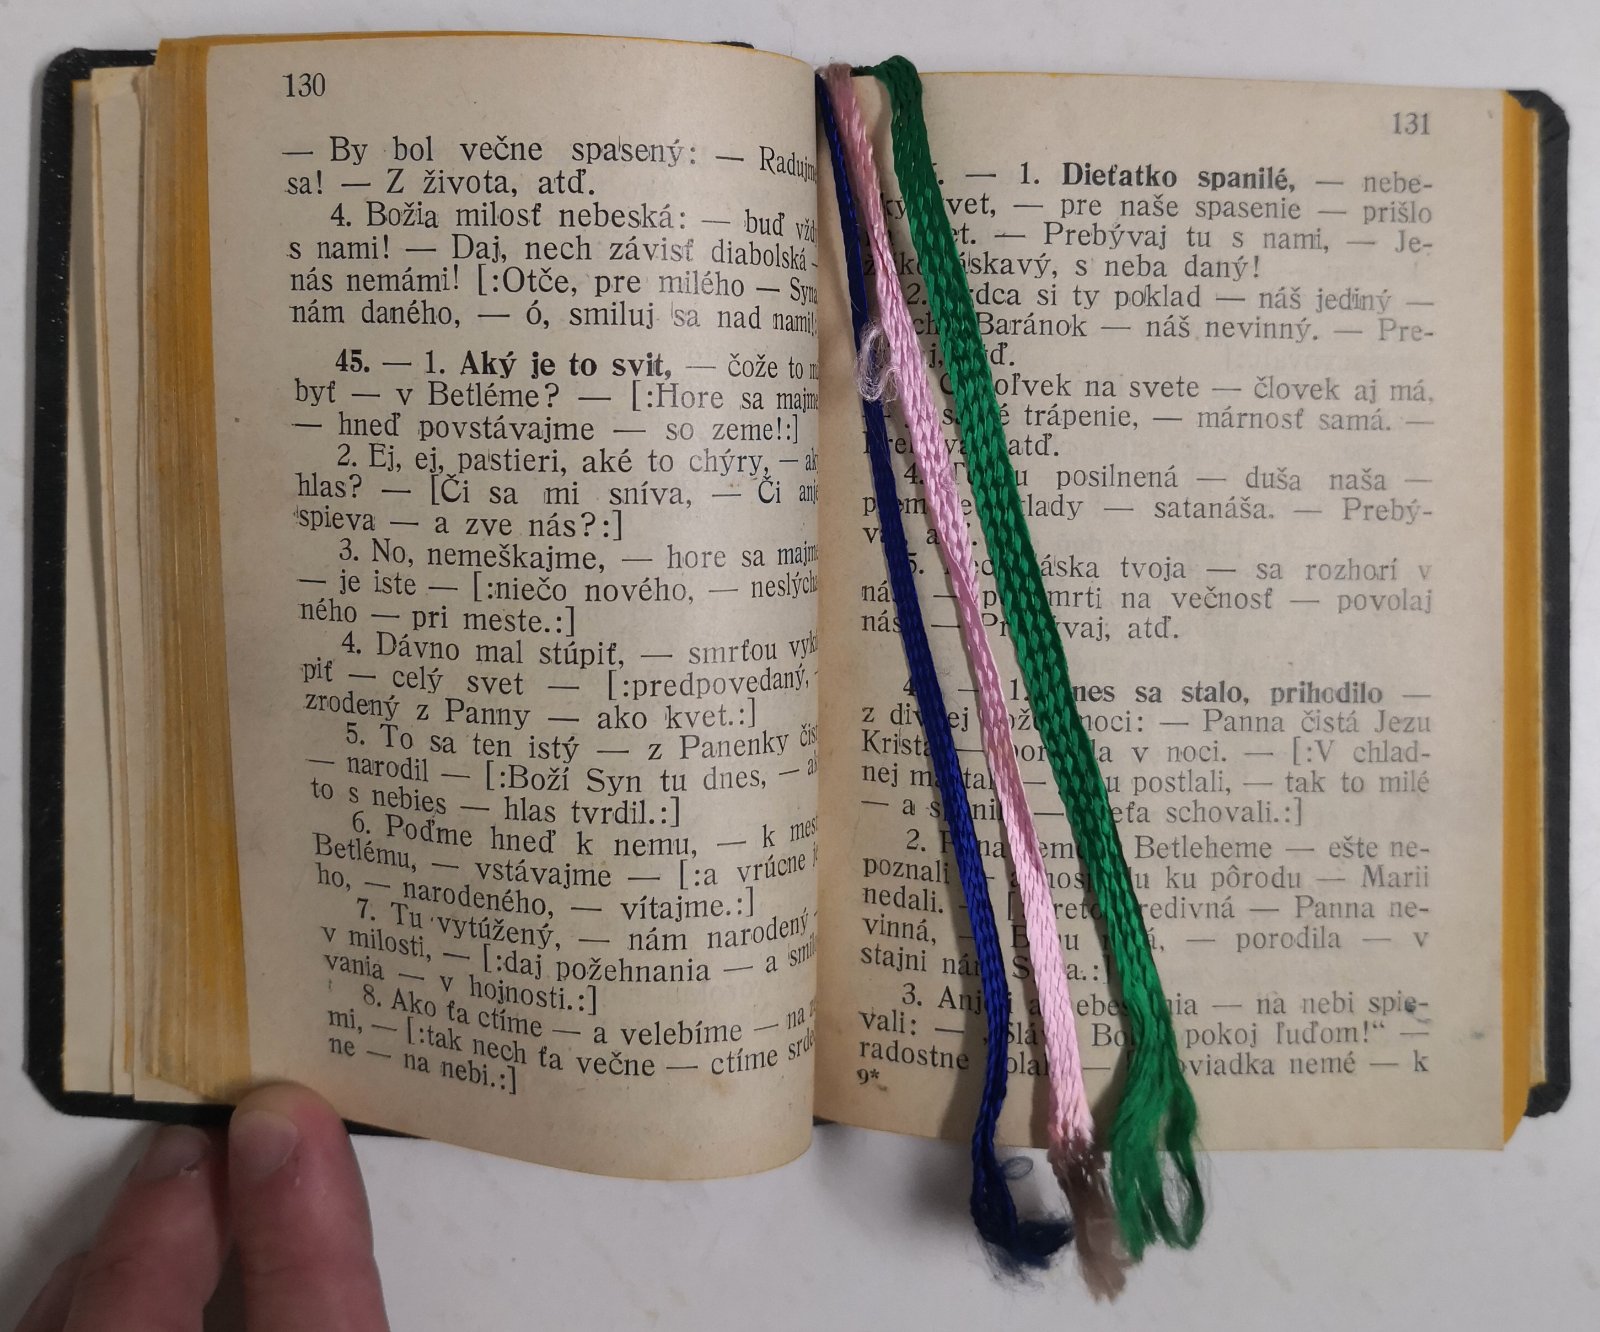 130
— By bol večne spasený: — Radujme
sa! — Z života, atď.
4. Božia milosť nebeská: — buď
s nami! — Daj, nech závisť diabolská —
nás nemámi! [:Otče, pre milého — Syna
nám daného, — ó, smiluj sa nad nami!:
45. — 1. Aký je to svit, — čože to
byť — v Betléme? — [:Hore sa majme
— hneď povstávajme — so zeme!:]
2. Ej, ej, pastieri, aké to chýry, —
hlas? — [Či sa mi sníva, — Či
spieva — a zve nás?:]
3. No, nemeškajme, — hore sa majme
— je iste — [:niečo nového, — neslýcha
ného — pri meste.:]
4. Dávno mal stúpiť, — smrťou
piť — celý svet — [:predpovedaný, —
zrodený z Panny — ako kvet.:]
5. To sa ten istý — z Panenky
— narodil — [:Boží Syn tu dnes, —
to s nebies — hlas tvrdil.:]
6. Poďme hneď k nemu, — k
Betlému, — vstávajme — [:a vrúcne
ho, — narodeného, — vítajme.:]
7. Tu vytúžený, — nám narodený —
v milosti, — [:daj požehnania — a
vania — v hojnosti.:]
8. Ako ťa ctíme — a velebíme — na
mi, — [:tak nech ťa večne — ctíme
ne — na nebi.:]
131
— 1. Dieťatko spanilé, — nebe-
svet, — pre naše spasenie — prišlo
— Prebývaj tu s nami, — Je-
láskavý, s neba daný!
2. Srdca si ty poklad — náš jediný —
Baránok — náš nevinný. — Pre-
atď.
na svete — človek aj má,
— trápenie, — márnosť samá. —
atď.
4. posilnená — duša naša —
— satanáša. — Prebý-
5. láska tvoja — sa rozhorí v
— smrti na večnosť — povolaj
nás — atď.
— 1. Dnes sa stalo, prihodilo —
z moci: — Panna čistá Jezu
Krista — v noci. — [:V chlad-
nej — postlali, — tak to milé
— a — schovali.:]
2. Betleheme — ešte ne-
poznali — ku pôrodu — Marii
nedali. — predivná — Panna ne-
vinná, — — porodila — v
stajni
3. — na nebi spie-
vali: — pokoj ľuďom!“ —
radostne — nemé — k
9*